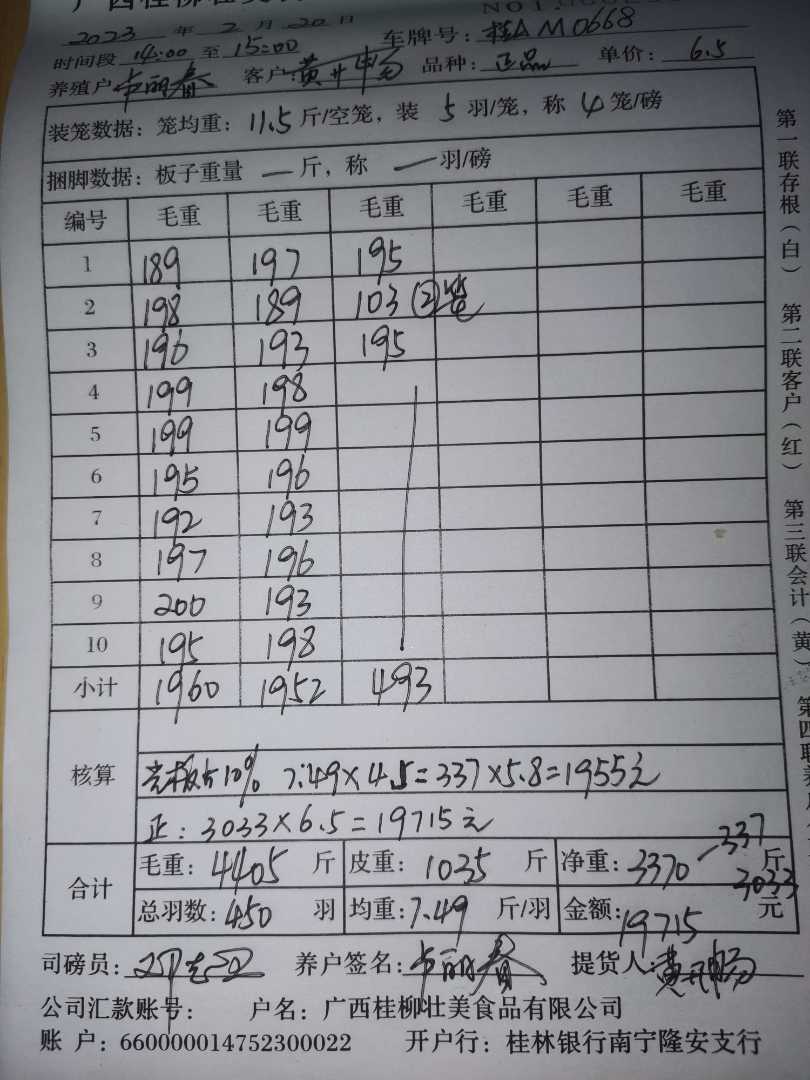 2023 年 2 月 20 日
时间段 14:00 至 15:00 车牌号: 桂AM0668
养殖户 卢丽春 客户: 黄 畅 品种: 正品 单价: 6.5
装笼数据: 笼均重: 11.5 斤/空笼, 装 5 羽/笼, 称 4 笼/磅
捆脚数据: 板子重量 — 斤, 称 — 羽/磅
编号 毛重 毛重 毛重 毛重 毛重 毛重
1 189 197 195
2 198 189 103 (2)笼
3 196 193 195
4 199 198
5 199 199
6 195 196
7 192 193
8 197 196
9 200 193
10 195 198
小计 1960 1952 493
核算
10% 7.49×4.5=337×5.8=1955元
正: 3033×6.5=19715元
合计
毛重: 4405 斤 皮重: 1035 斤 净重: 3370 -337 斤
3033
总羽数: 450 羽 均重: 7.49 斤/羽 金额: 19715 元
司磅员: 养户签名: 卢丽春 提货人: 黄 畅
公司汇款账号: 户名: 广西桂柳壮美食品有限公司
账 户: 660000014752300022 开户行: 桂林银行南宁隆安支行
第一联存根(白) 第二联客户(红) 第三联会计(黄) 第四联养